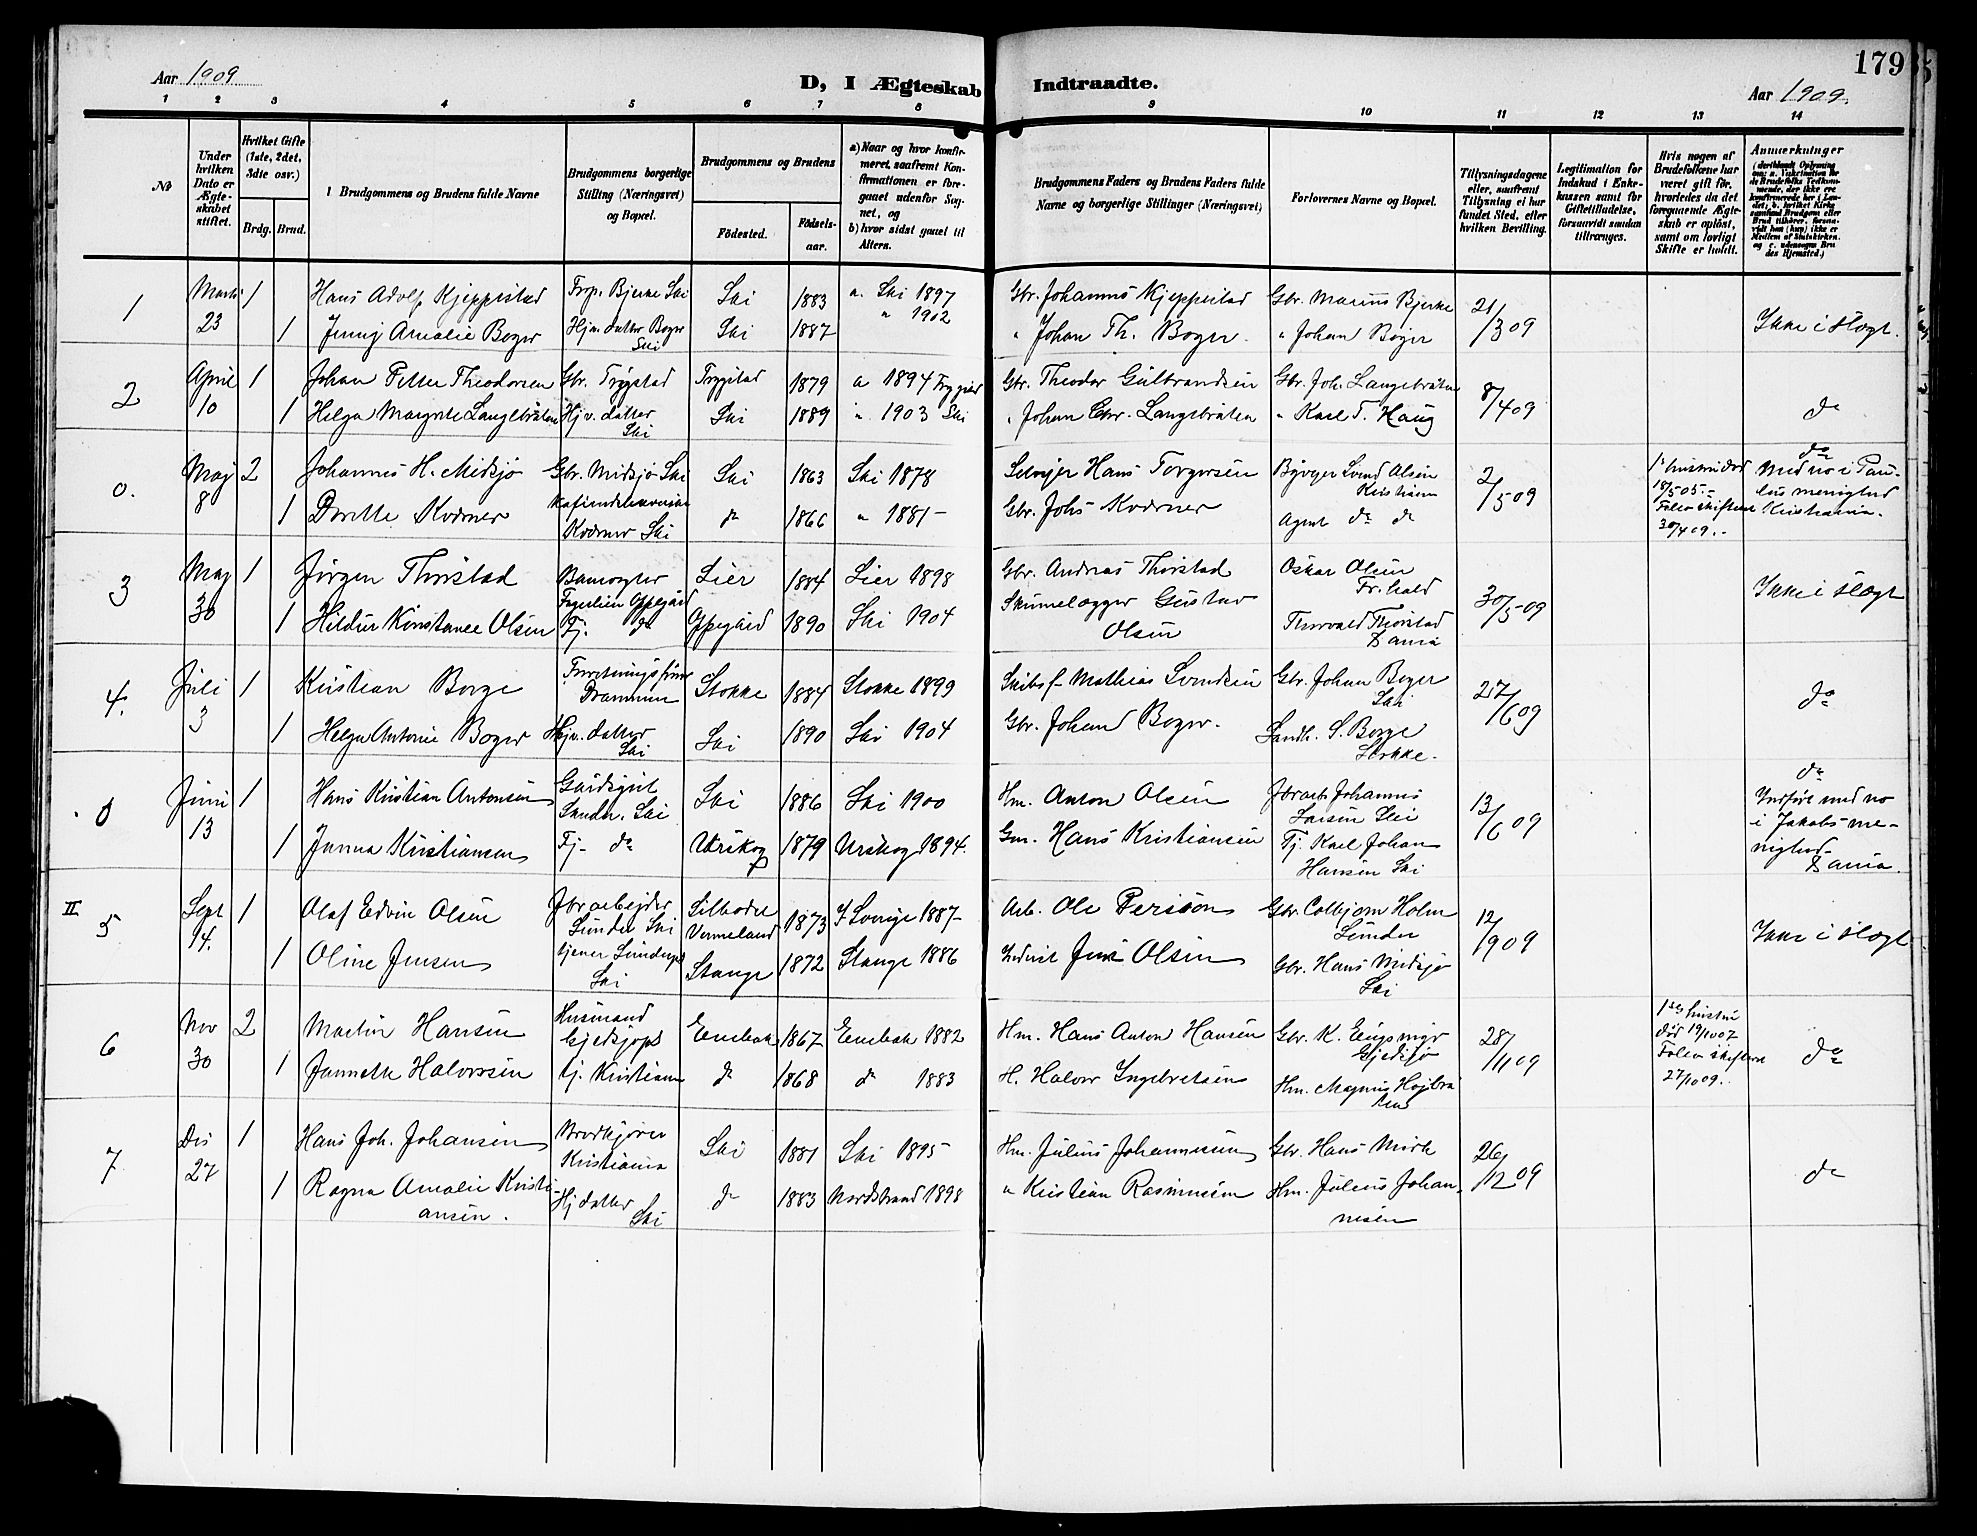 179
Aar 1909
D, I Ægteskab Indtraadte.
Aar 1909.
1 2 3 4 5 6 7 8 9 10 11 12 13 14
№
Under hvilken Dato er Ægteskabet stiftet.
Hvilket Gifte (1ste, 2det, 3die osv.)
Brdg. Brud.
Brudgommens og Brudens fulde Navne
Brudgommens borgerlige Stilling (Næringsvei) og Bopæl.
Brudgommens og Brudens
Fødested.
Fødselsaar.
a) Naar og hvor konfirmeret, saafremt Konfirmationen er foregaaet udenfor Sognet, og
b) hvor sidst gaaet til Alters.
Brudgommens Faders og Brudens Faders fulde Navne og borgerlige Stillinger (Næringsvei)
Forlovernes Navne og Bopæl.
Tillysningsdagene eller, saafremt Tillysning ei har fundet Sted, efter hvilken Bevilling.
Legitimation for Indskud i Enkekassen samt for Giftetilladelse, forsaavidt saadan tiltrænges.
Hvis nogen af Brudefolkene har været gift før, hvorledes da det foregaaende Ægteskab er opløst, samt om lovligt Skifte er holdt.
Anmærkninger
1 Marts 23 1 Hans Adolf Kjeppestad Forp. Bjerke Ski Ski 1883 a. Ski 1897 Gbr. Johannes Kjeppestad Gbr. Marius Bjerke 21/3 09
1 Jenny Amalie Boger Hjv. datter Boger Ski Ski 1887 " 1902 " Johan Th. Boger. " Johan Boger Ikke i slægt.
2 April 10 1 Johan Petter Theodorsen Gbr. Trygstad Trygstad 1879 a 1894 Trygstad Gbr. Theodor Gulbrandsen Gbr. Joh. Langebråten 8/4 09
1 Helga Margrete Langebråten Hjv. datter Ski Ski 1889 " 1903 Ski " Johan Chr. Langebråten " Karl T. Haug do
0. Maj 8 2 Johannes H. Midsjø Gbr. Midsjø Ski Ski 1863 Ski 1878 Selvejer Hans Torgersen Svend Olsen Kristiania 2/5 09 1ste hustru død 18/5 05. – Follo skifteret 30/4 09. – do Med no i Paulus menighed Kristiania.
1 Dorthe Kværner Kværner Ski do 1866 " 1881 – Gbr. Johs Kværner Agent do do
3 Maj 30 1 Jørgen Thorstad Banevogter Fagerlien Oppegård Lier 1884 Lier 1898 Gbr. Andreas Thorstad Oskar Olsen Fr.hald 30/5 09 Ikke i slægt
1 Hildur Konstance Olsen Tj. do Oppegård 1890 Ski 1904 Gustav Olsen Thorvald Thorstad
4. Juli 3 1 Kristian Borge Forretningsfører Drammen Stokke 1884 Stokke 1899 Skibsf. Mathias Svendsen Gbr. Johan Boger Ski 27/6 09 do
1 Helga Antonie Boger Hjv. datter Ski Ski 1890 Ski 1904 Gbr. Johan Boger. Landh. S. Borge Stokke.
0 Juni 13 1 Hans Kristian Antonsen Gårdsgut Sander, Ski Ski 1886 Ski 1900 Hm. Anton Olsen Jbrarb. Johannes Larsen Ski 13/6 09 do Indført med no i Jakobs menighed
1 Janna Kristiansen Tj. do Urskog 1879 Urskog 1894. Gm. Hans Kristiansen Tj. Karl Johan Hansen Ski
II
5 Sept 14. 1 Olaf Edvin Olsen Jbrarbejder Sander Ski Silbodel Vermeland 1873 I Sverige 1887 – Arb. Ole Persson Gbr. Colbjørn Holm Sander 12/9 09 Ikke i slægt
1 Oline Jensen tjener Ski Stange 1872 Stange 1886 Inderst Jens Olsen Gbr. Hans Midsjø Ski
6 Nov 30 2 Martin Hansen Husmand Enebak 1867 Enebak 1882 Hm. Hans Anton Hansen Gbr. K. Gjedsjø 28/11 09 1ste hustru død 19/10 07 Follo skifteret 27/10 09. do
1 Jannette Halvorsen tj. Kristiania do 1868 do 1883 H. Halvor Ingebretsen Hm. Magnus Højbråten
7 Des 27 1 Hans Joh. Johansen Brødkjører Kristiania Ski 1881 Ski 1895 Hm. Julius Johannesen Gbr. Hans Mørk 26/12 09 do
1 Ragna Amalie Kristiansen. Hj datter Ski do 1883 Nordstrand 1898 " Kristian Rasmussen Hm. Julius Johannesen